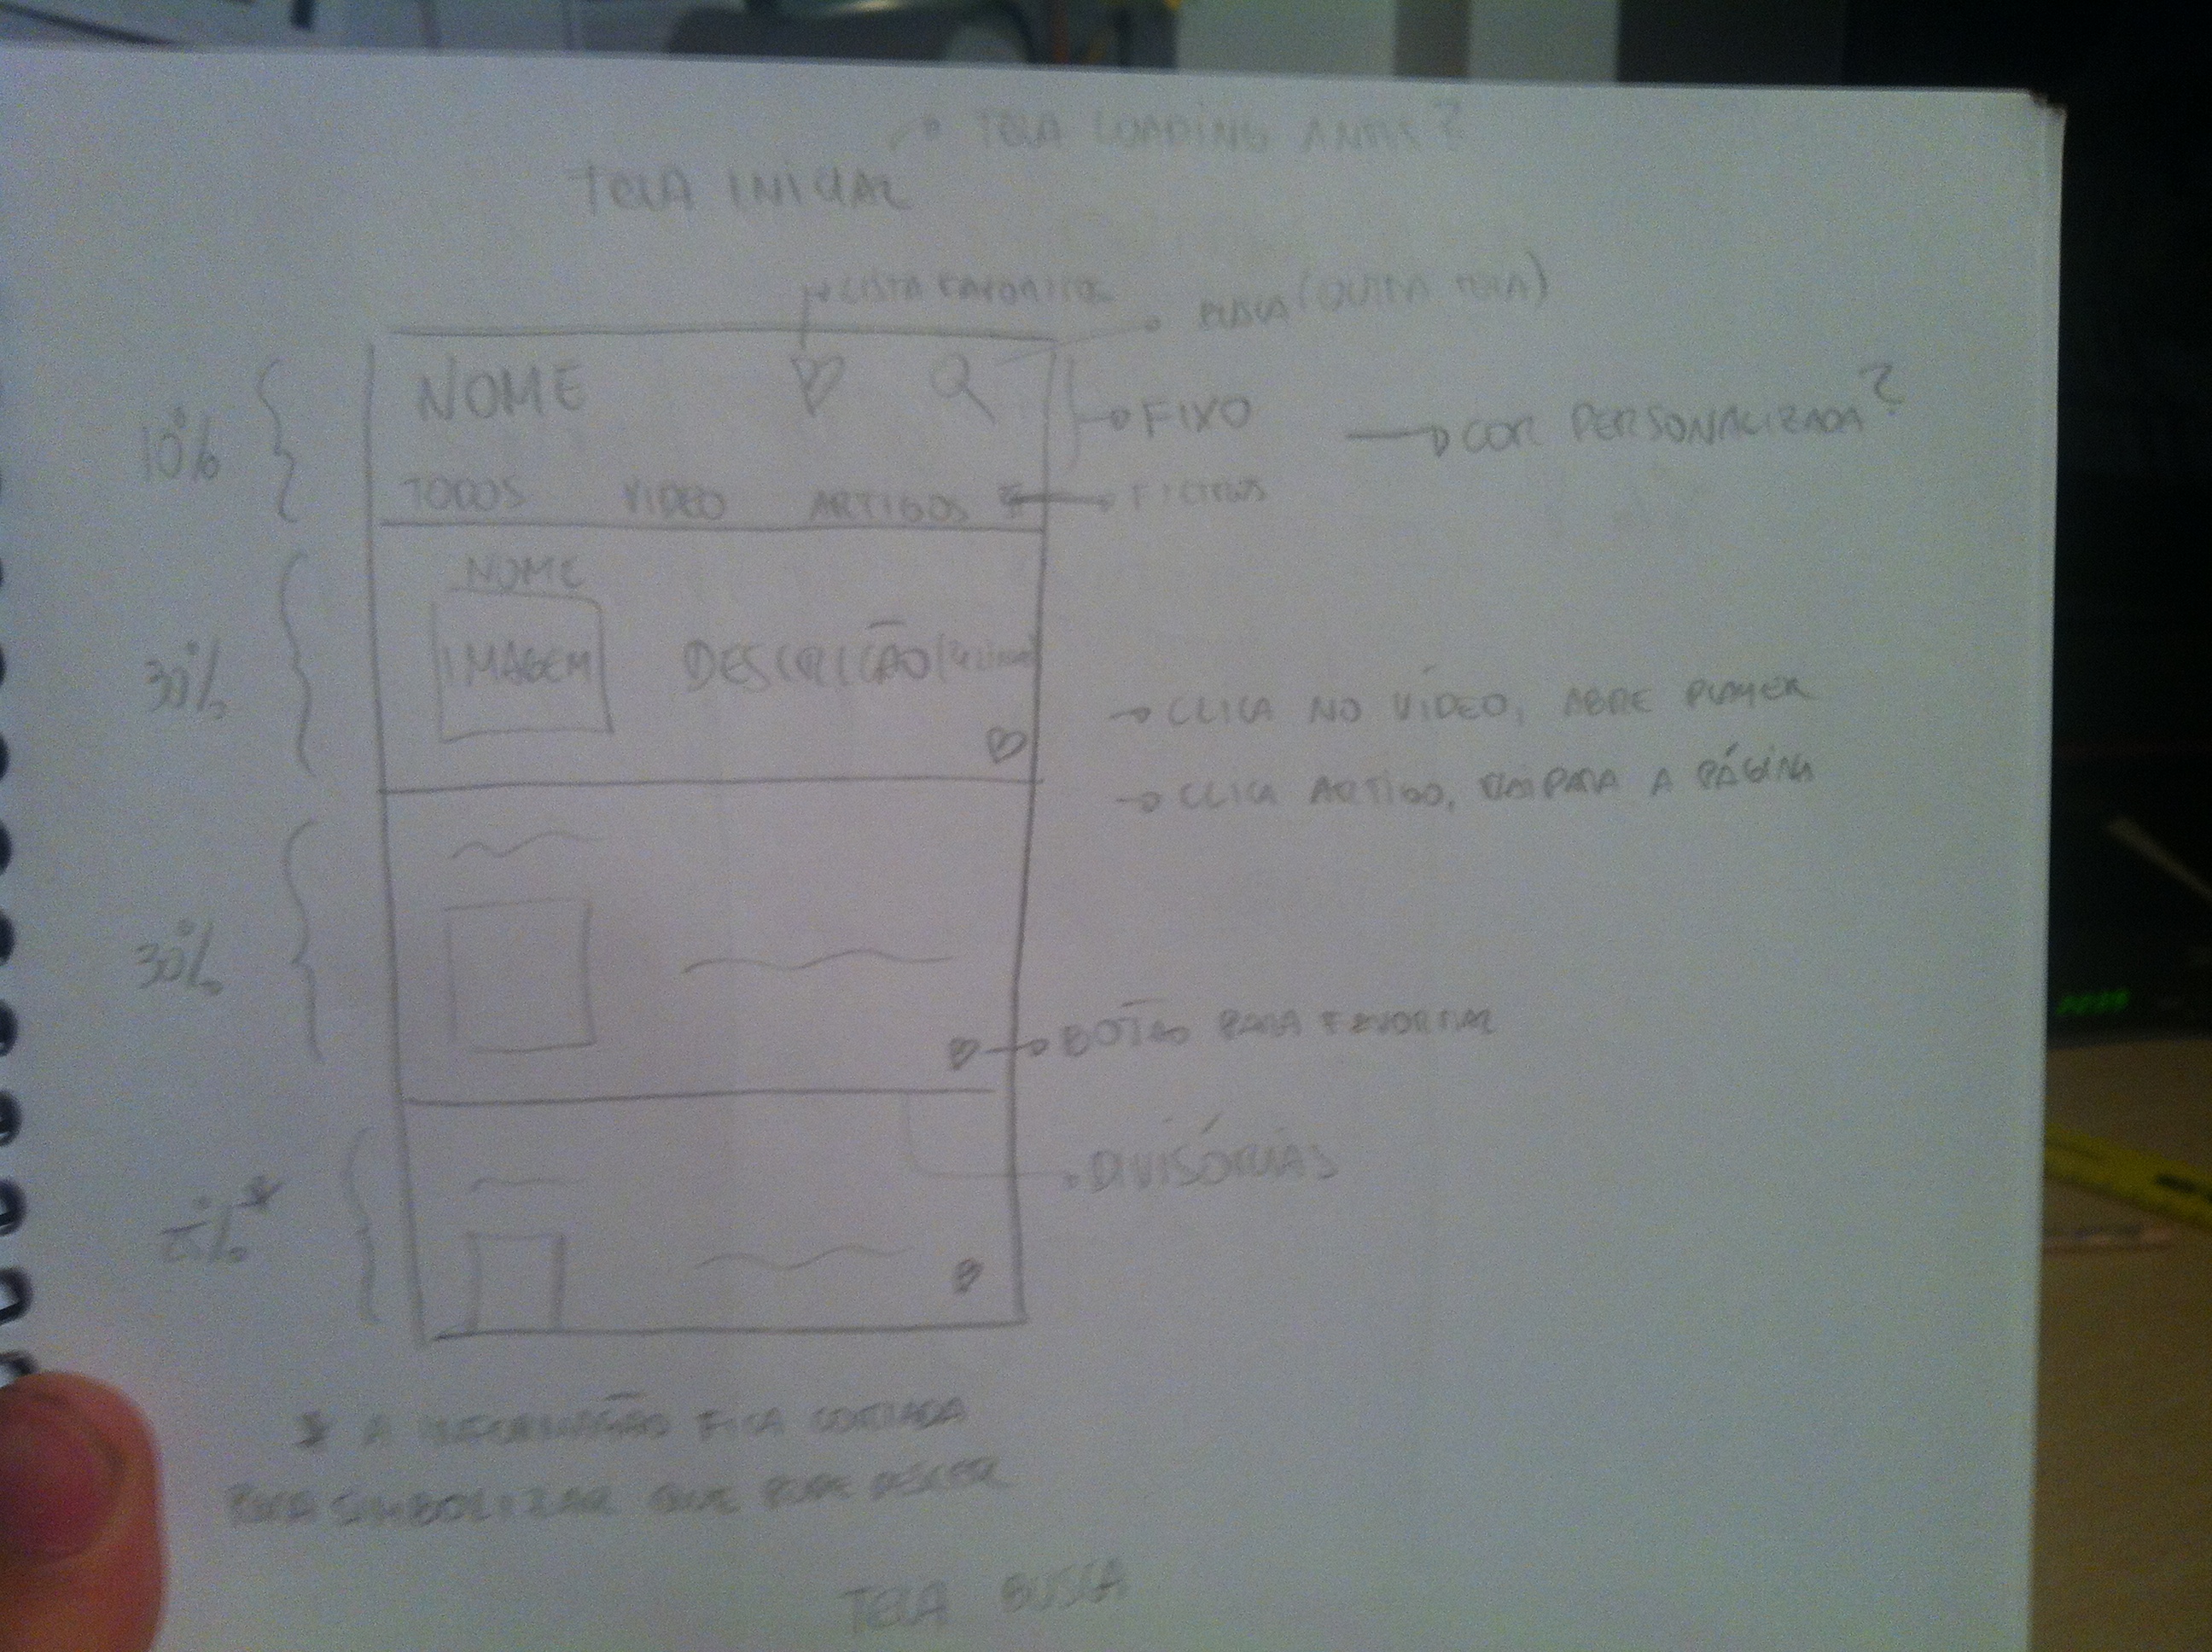 TELA LOADING ANTES?
TELA INICIAL
LISTA FAVORITOS
BUSCA (OUTRA TELA)
NOME
10%
FIXO
COR PERSONALIZADA?
TODOS VIDEO ARTIGOS
FILTROS
NOME
30%
IMAGEM
DESCRIÇÃO
CLICA NO VÍDEO, ABRE PLAYER
CLICA ARTIGO, VAI PARA A PÁGINA
30%
BOTÃO PARA FAVORITAR
DIVISÓRIAS
* A INFORMAÇÃO FICA CORTADA
PARA SIMBOLIZAR QUE PODE DESCER
TELA BUSCA